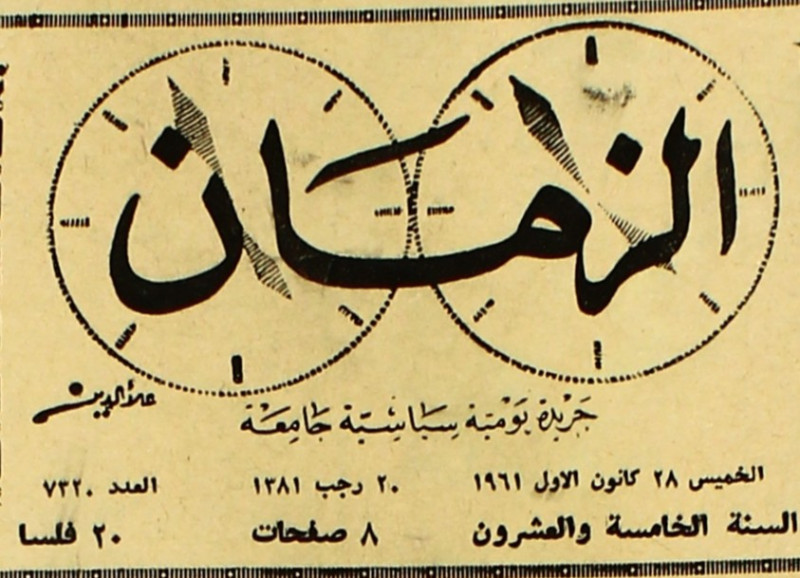 الزمان
علاء الدين
جريدة يومية سياسية جامعة
الخميس ٢٨ كانون الاول ١٩٦١ ٢٠ رجب ١٣٨١ العدد ٧٣٢٠
السنة الخامسة والعشرون ٨ صفحات ٢٠ فلسا